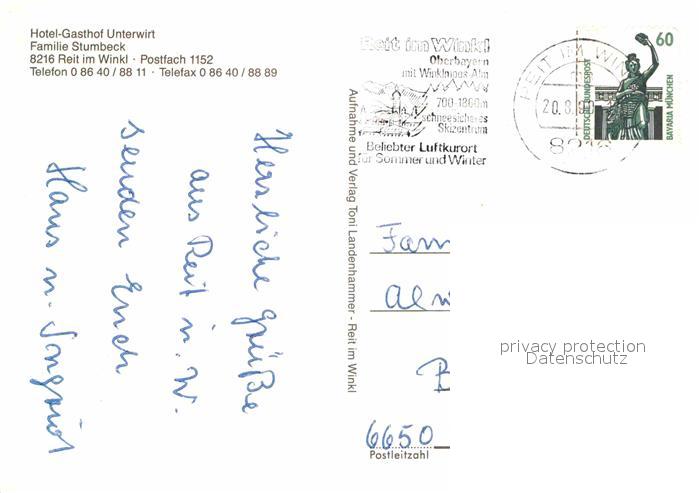 Hotel-Gasthof Unterwirt
Familie Stumbeck
8216 Reit im Winkl · Postfach 1152
Telefon 0 86 40 / 88 11 · Telefax 0 86 40 / 88 89
Herzliche Grüße
aus Reit i. W.
senden Euch
Hans u.
Aufnahme und Verlag Toni Landenhammer - Reit im Winkl
Reit im Winkl
Oberbayern
mit Winklmoos-Alm
700-1800m
schneesicheres
Skizentrum
Beliebter Luftkurort
für Sommer und Winter
REIT IM WIN
20.8.
8216
60
DEUTSCHE BUNDESPOST
BAVARIA MÜNCHEN
Fam
6650
Postleitzahl
privacy protection
Datenschutz